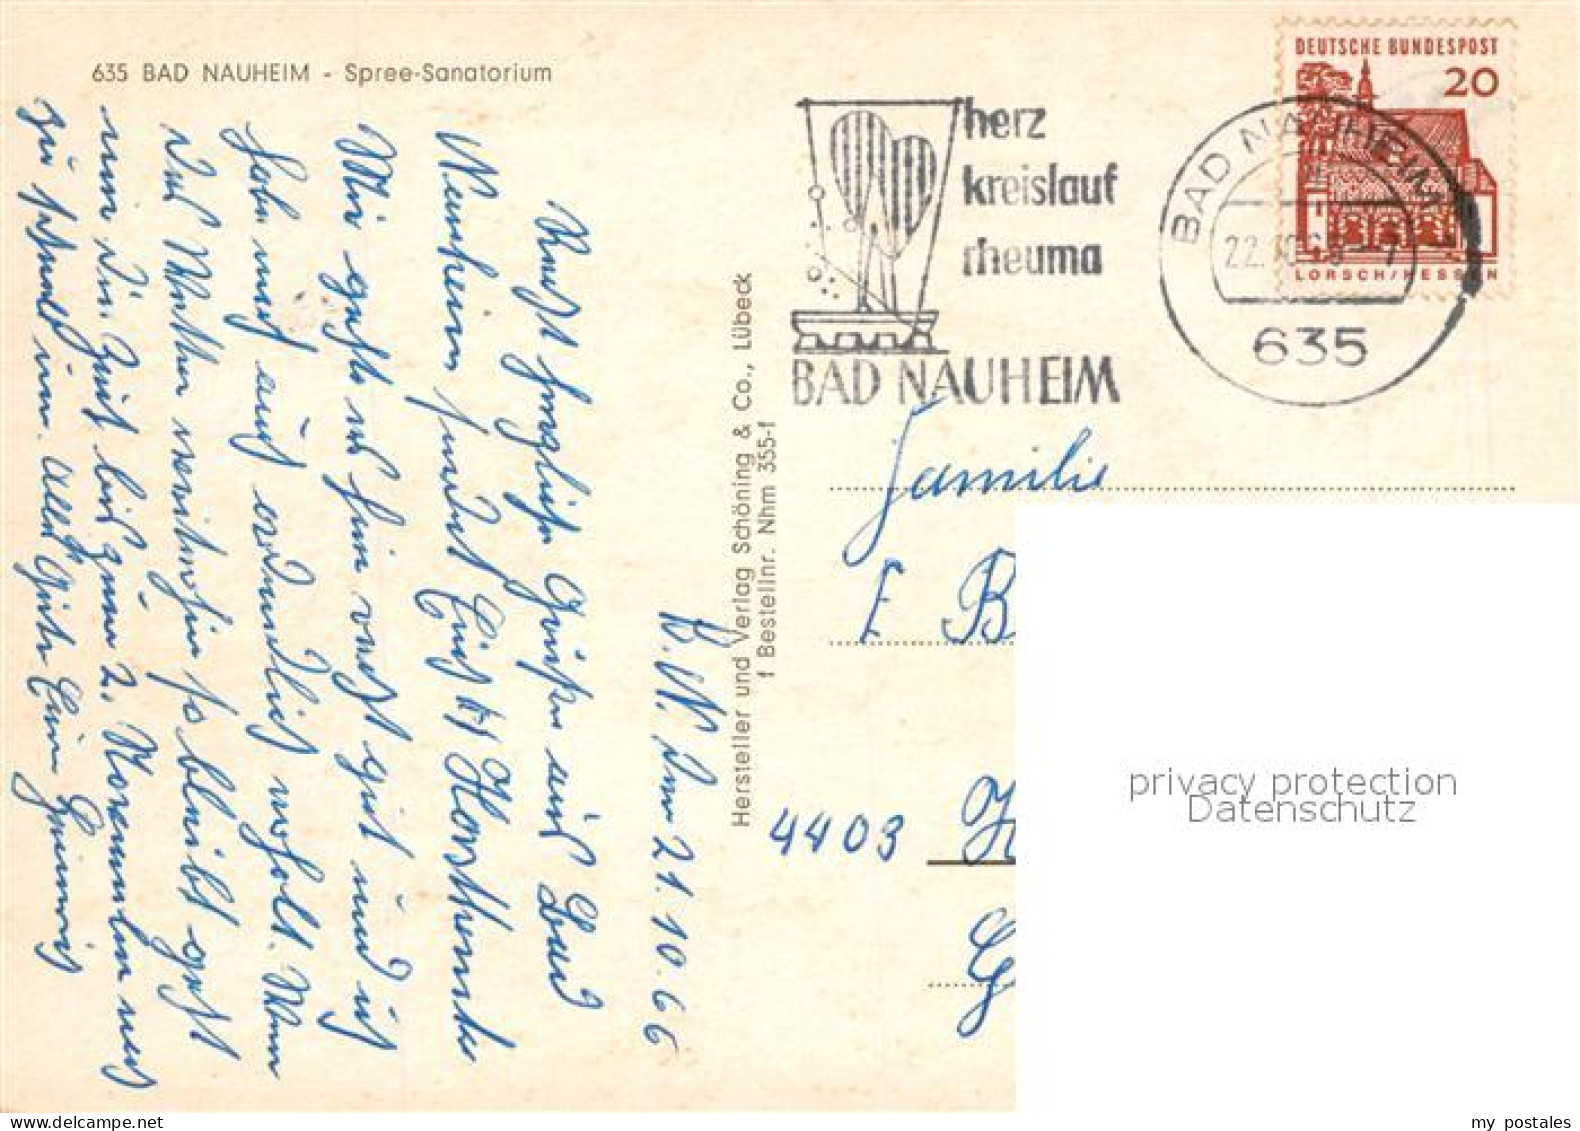 635 BAD NAUHEIM - Spree-Sanatorium
B. N. den 21.10.66
Recht herzliche Grüße aus Bad
Nauheim sendet Euch
Mir geht es hier recht gut und ich
habe mich auch ordentlich erholt. Wenn
das Wetter weiterhin so bleibt geht
mir die Zeit bis zum 2. November noch
zu schnell um. Alles Gute Euer Heinrich
Hersteller und Verlag Schöning & Co., Lübeck
f Bestellnr. Nhm 355-f
herz
kreislauf
rheuma
BAD NAUHEIM
BAD NAUHEIM
635
DEUTSCHE BUNDESPOST
20
LORSCH/HESSEN
Familie
B
4403 H
privacy protection
Datenschutz
www.ansichtskartenversand.com
my postales